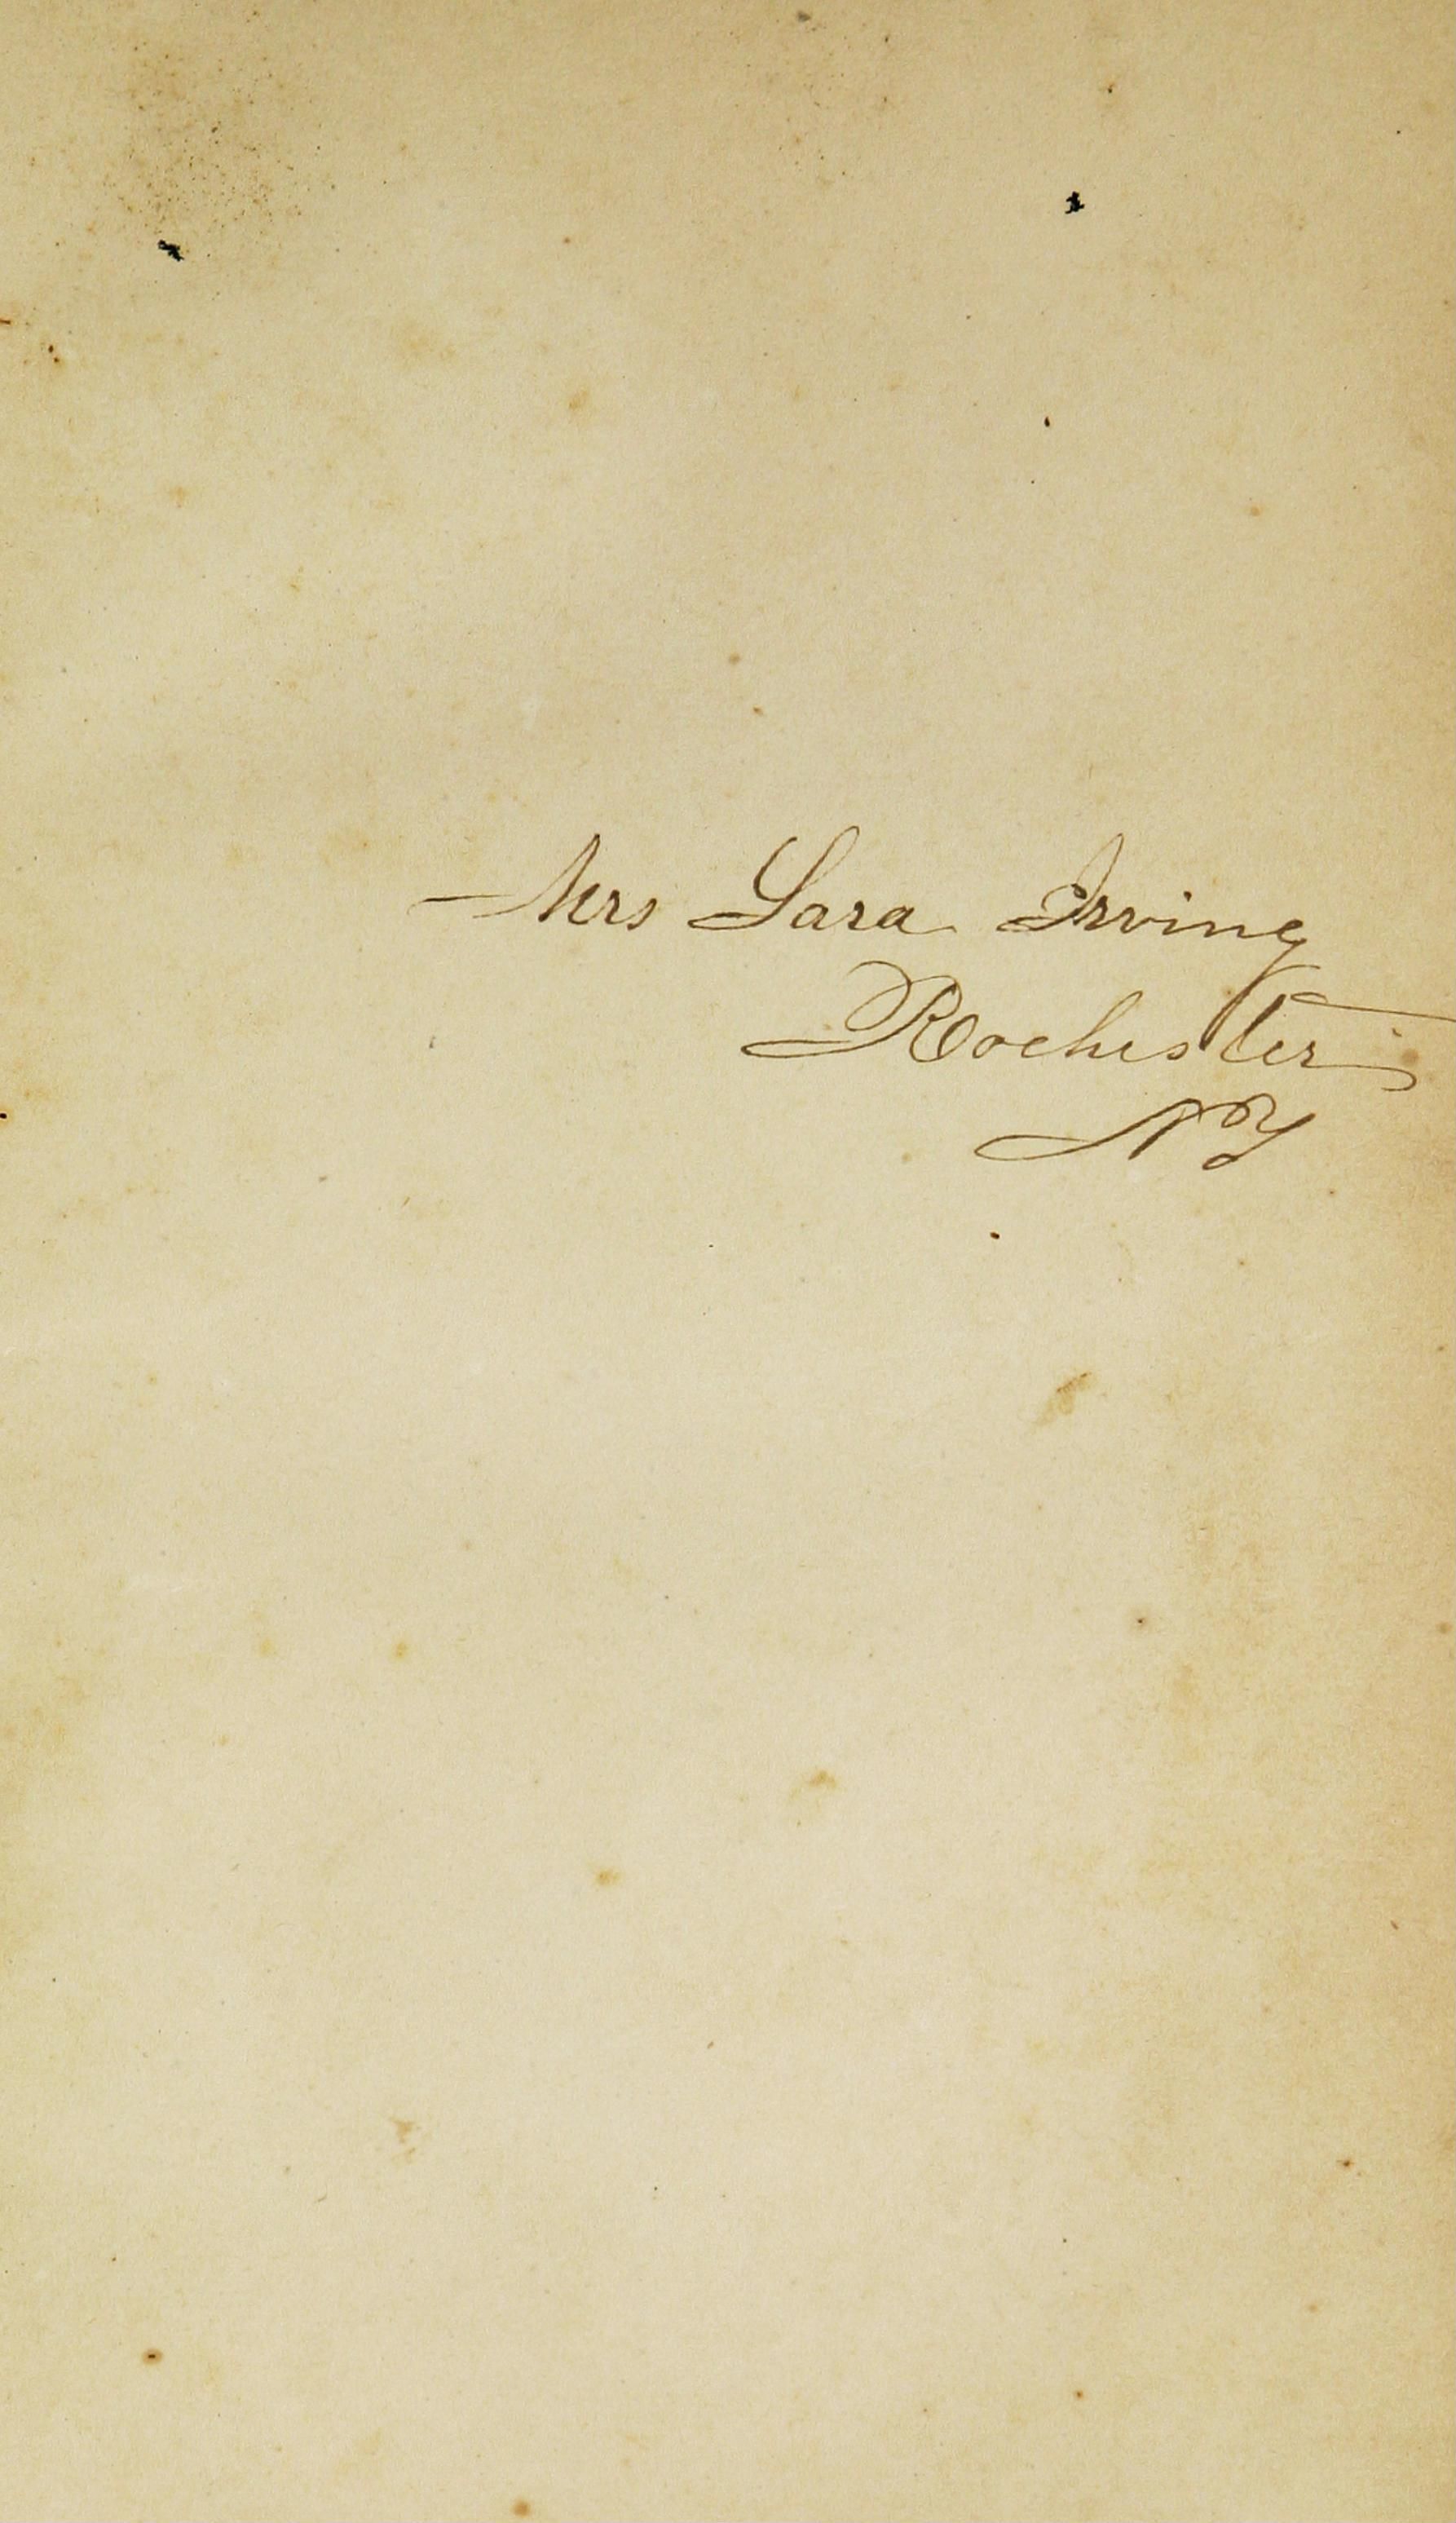 Mrs Sara Irving
Rochester
NY